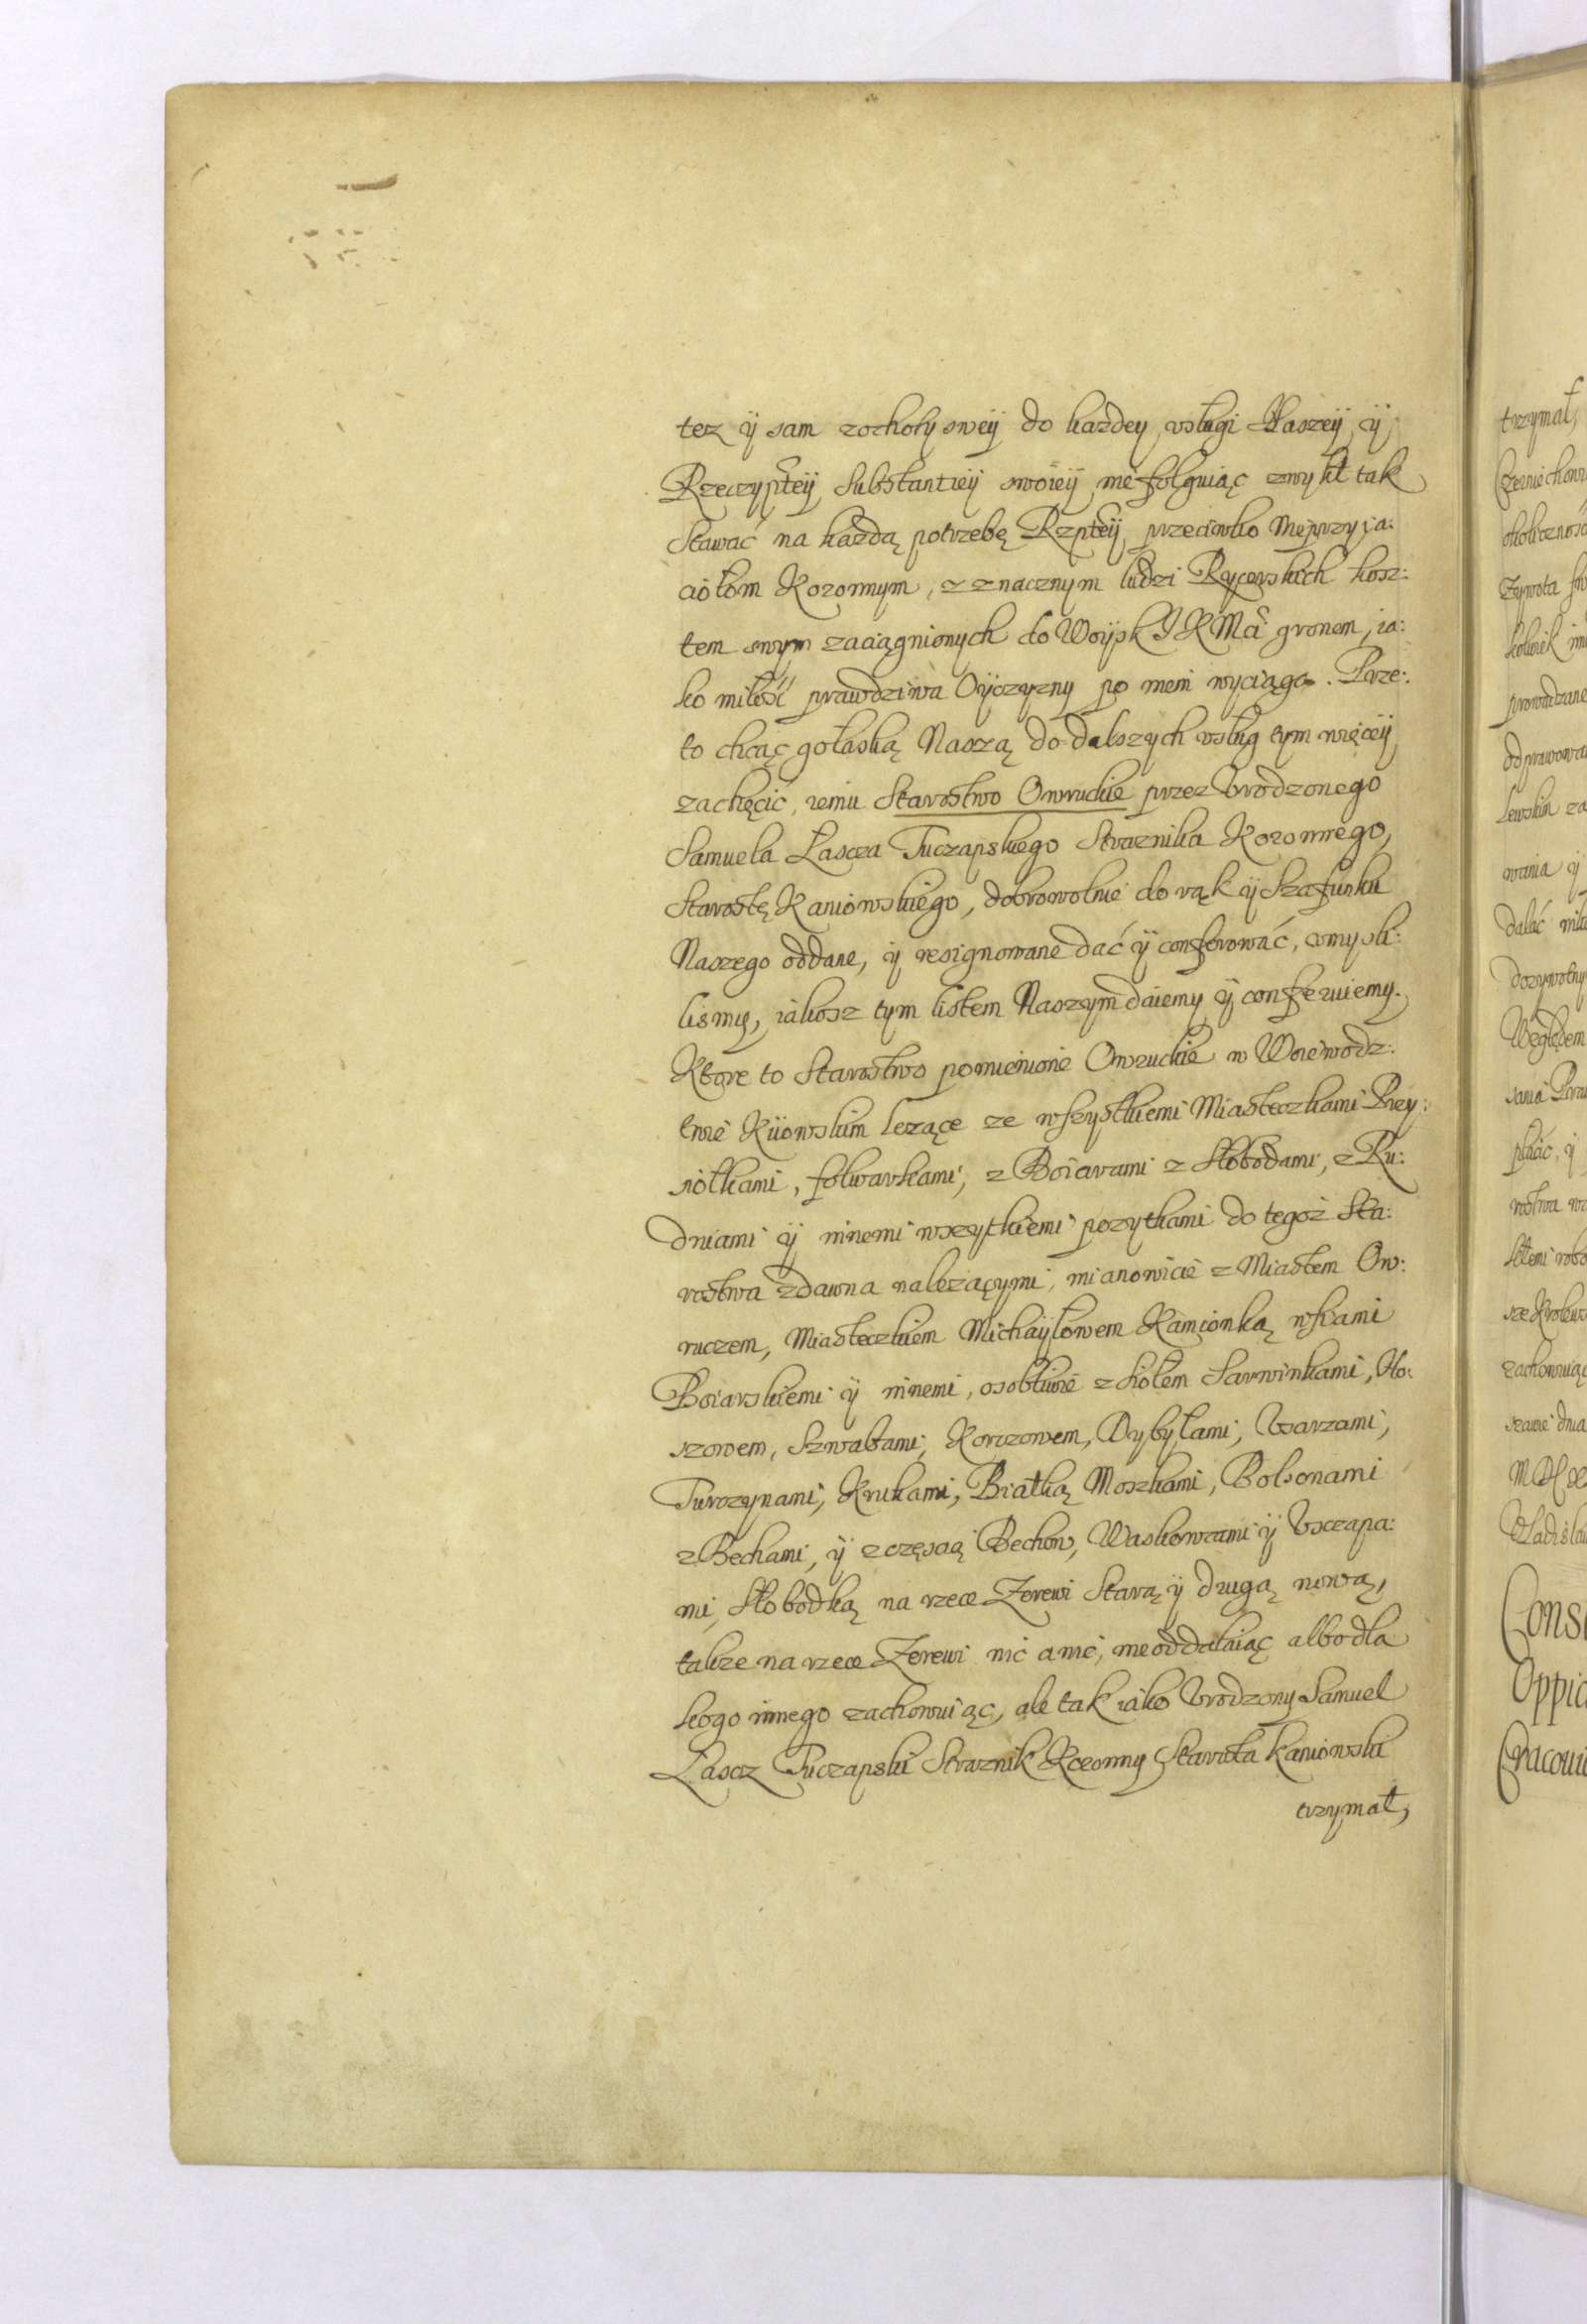 tez ÿ sam zochoty sweÿ do kazdey vsługi Naszeÿ, ÿ
Rzeczyptēÿ Substantieÿ swoieÿ, nie folguiąc zwykł tak
stawać na kazdą potrzebę Rzptēÿ, przeciwko Nieprzyia:
ciołom Koronnym, z znacznym ludzi Rycerskich kosz:
tem swym zaciągnionych do Woÿsk J K Mci gronem, ia:
ko miłość prawdziwa Oÿczyzny po niem wyciąga. Prze:
to chcąc gołaską Naszą do dalszych vsług tym więceÿ
zachęcić, iemu Starostwo Owruckie przez Vrodzonego
Samuela Łascza Tuczapskiego Straznika Koronnego,
Starostę Kaniowskiego, dobrowolnie do rąk ÿ Szafunku
Naszego oddane, ÿ resignowane dać ÿ conferować, vmysli:
lismy, iakosz tym listem Naszym daiemy ÿ conferuiemy.
Ktore to Starostwo pomienione Owruckie w Woiewodz:
twie Kÿowskim lezące ze wszystkiemi Miasteczkami Przy:
siołkami, folwarkami, z Boiarami z Słobodami, z Ru:
dniami ÿ innemi wszytkiemi pozytkami do tegoż Sta:
rostwa zdawna nalezącymi, mianowicie z Miastem Ow:
ruczem, Miasteczkiem Michaÿłowem Kamionką wsiami
Boiarskiemi ÿ innemi, osobliwie z siołem Sarwinkami, No:
szowem, Szwabami, Korczowem, Dybyłami, Vsarzami,
Turczynami, Krukami, Białką Moszkami, Bolsonami
z Bechami, ÿ zczęscią Bechow, Waskowcami ÿ Vsczapa:
mi, Słobodką na rzece Zerewi Starą ÿ drugą nową,
takze na rzece Zerewi nic a nic, nieoddalaiąc albo dla
kogo innego zachowuiąc, ale tak iako Vrodzony Samuel
Łascz Tuczapski Straznik Koronny Starosta kaniowski
trzymał,